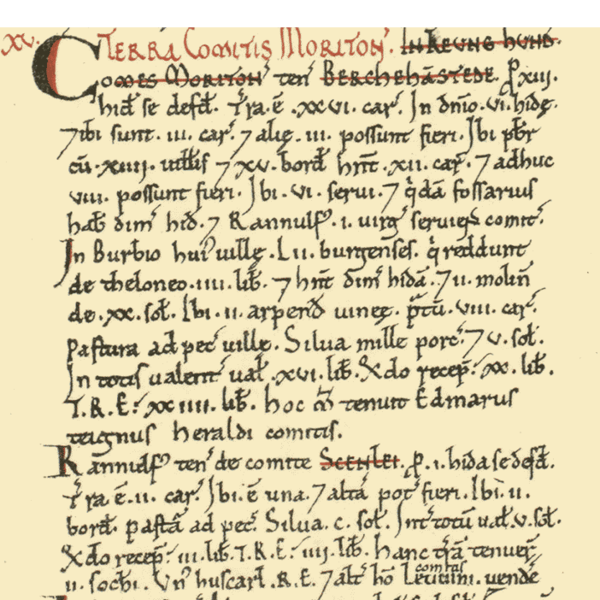 XV. TERRA COMITIS MORITON̄. IN TREUNG HUND.
COMES MORITON̄ ten̄ BERCHEHĀSTEDE. ꝑ XIII.
hid̄ se defd̄. T̄ra.ē .XXVI. car̄. In dn̄io .VI. hidę.
⁊ ibi sunt .III. car̄. ⁊ alię .III. possunt fieri. Ibi pb̄r
cū .XIIII. uitt̄is ⁊ XV. bord̄ hn̄t .XII. car̄. ⁊ adhuc
VIII. possunt fieri. Ibi .VI. serui. ⁊ q̄dā fossarius
hab̄ dim̄ hid̄. ⁊ Rannulf̄ .I. uirg̃ seruieñs comit̄.
In Burbio hui᷒ uillę .LII. burgenses. q̄ reddunt
de theloneo .IIII. lib̄. ⁊ hn̄t dim̄ hidā. ⁊ II. molin̄
de .XX. sol̄. Ibi .II. arpend̄ uineę. p̄tū .VIII. car̄.
Pastura ad pec̄ uillę. Silua mille porc̄. ⁊ V. sol̄.
In totis ualent̄ ual̄ .XVI. lib̄. Q̄do recep̄: XX. lib̄.
T.R.E: XXIIII. lib̄. hoc m̄ tenuit Edmarus
teignus heraldi comitis.
Rannulf̄ ten̄ de comite SCENLEI. ꝑ .I. hida se defd̄.
T̄ra ē .II. car̄. Ibi.ē una. ⁊ altā pot̄ fieri. Ibi .II.
bord̄. past̄a ad pec̄. Silua .C. sol̄. Int̄ totū ual̄ .V. sol̄.
Q̄do recep̄: III. lib̄. T.R.E: IIII. lib̄. hanc t̄rā tenuer̄
II. sochi. Un᷒ huscarl .R.E. ⁊ alt̄ hō Leuuini comitis. uende